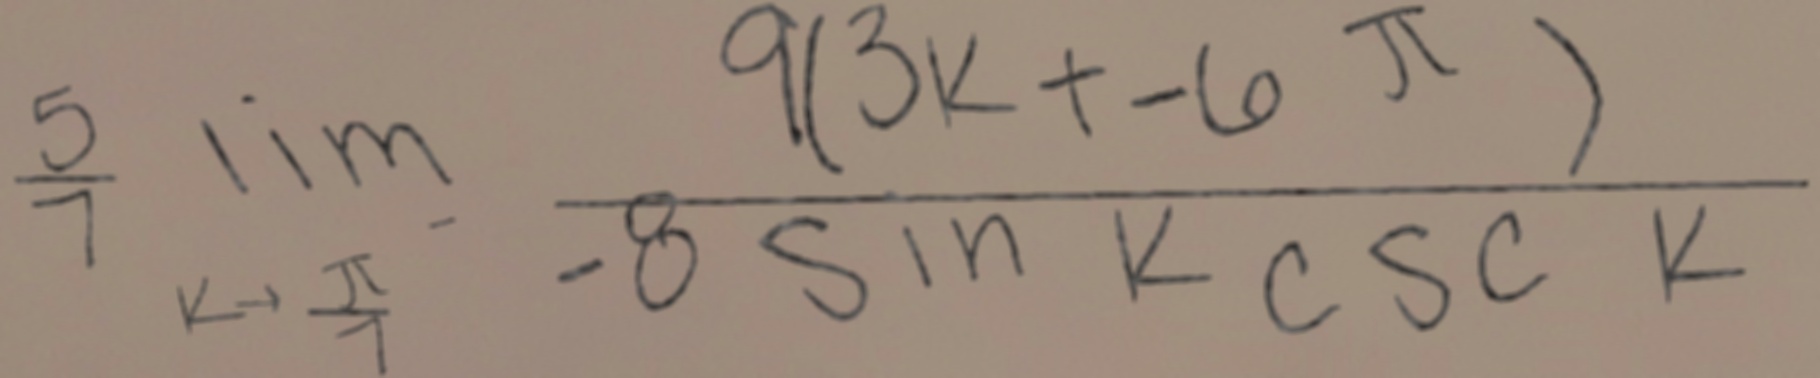 \frac{5}{7} \lim_{k \to \frac{\pi}{7}^{-}} \frac{9(3k+-6\pi)}{-8 \sin k \csc k}